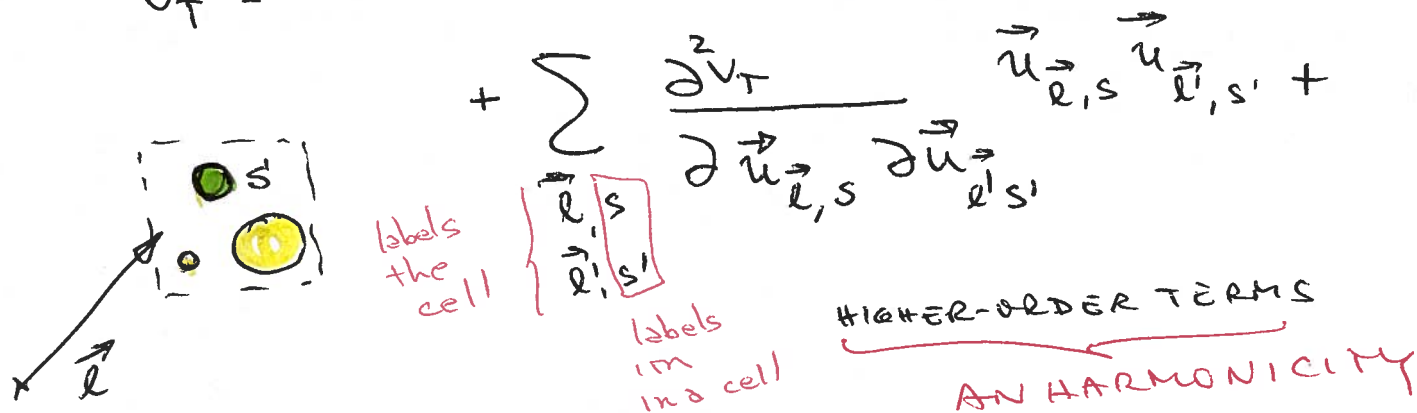 + ∑ ∂²V_T / ∂u⃗_{l⃗,s} ∂u⃗_{l⃗'s'} u⃗_{l⃗,s} u⃗_{l⃗',s'} +
s
l⃗, s
l⃗', s'
labels
the
cell
labels
ion
in a cell
HIGHER-ORDER TERMS
ANHARMONICITY
l⃗